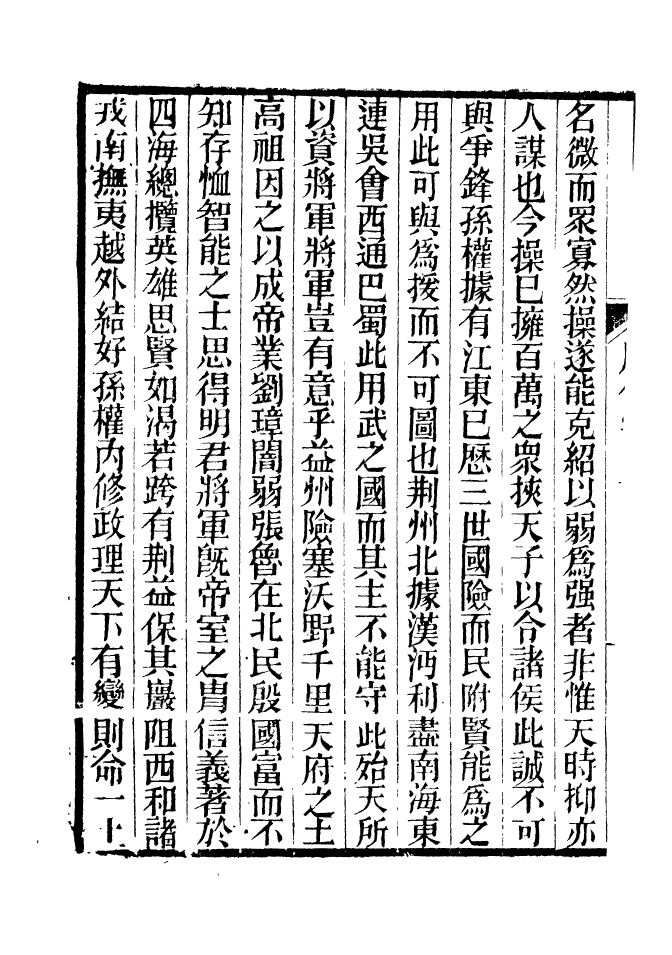 名微而眾寡然操遂能克紹以弱爲强者非惟天時抑亦
人謀也今操已擁百萬之眾挾天子以令諸侯此誠不可
與爭鋒孫權據有江東已歷三世國險而民附賢能爲之
用此可與爲援而不可圖也荆州北據漢沔利盡南海東
連吳會西通巴蜀此用武之國而其主不能守此殆天所
以資將軍將軍豈有意乎益州險塞沃野千里天府之土
高祖因之以成帝業劉璋闇弱張魯在北民殷國富而不
知存恤智能之士思得明君將軍旣帝室之胄信義著於
四海總攬英雄思賢如渴若跨有荆益保其巖阻西和諸
戎南撫夷越外結好孫權內修政理天下有變則命一上